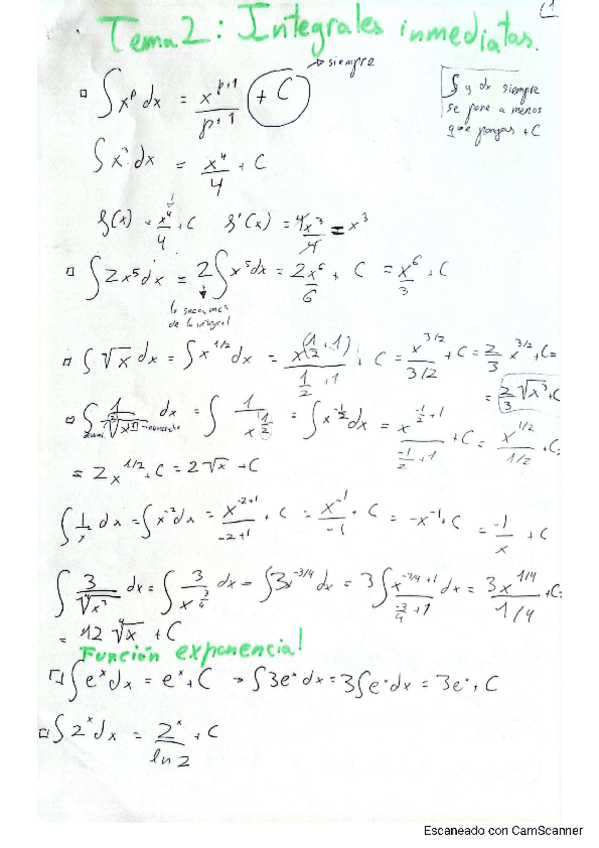 (1
Tema 2: Integrales inmediatas.
→ siempre
□ ∫x^p dx = x^(p+1)/(p+1) + C
∫ y dx siempre
se pone a menos
que pongas +C
∫x³ dx = x⁴/4 + C
f(x) = x⁴/4 + C f'(x) = 4x³/4 = x³
□ ∫2x⁵dx = 2∫x⁵dx = 2x⁶/6 + C = x⁶/3 + C
lo sacamos
de la integral
□ ∫√x dx = ∫x^(1/2) dx = x^(1/2+1)/(1/2+1) + C = x^(3/2)/(3/2) + C = 2/3 x^(3/2) + C =
= 2/3 √x³ + C
□ ∫ 1/√x dx = ∫ 1/x^(1/2) = ∫x^(-1/2) dx = x^(-1/2+1)/(-1/2+1) + C = x^(1/2)/(1/2) + C =
= 2x^(1/2) + C = 2√x + C
∫ 1/x dx = ∫x^(-2) dx = x^(-2+1)/(-2+1) + C = x^(-1)/(-1) + C = -x^(-1) + C = -1/x + C
∫ 3/⁴√x³ dx = ∫ 3/x^(3/4) dx = ∫3x^(-3/4) dx = 3∫ x^(-3/4+1)/(-3/4+1) dx = 3x^(1/4)/(1/4) + C =
= 12 ⁴√x + C
Función exponencial
□ ∫e^x dx = e^x + C → ∫3e^x dx = 3∫e^x dx = 3e^x + C
□ ∫2^x dx = 2^x/ln 2 + C
Escaneado con CamScanner